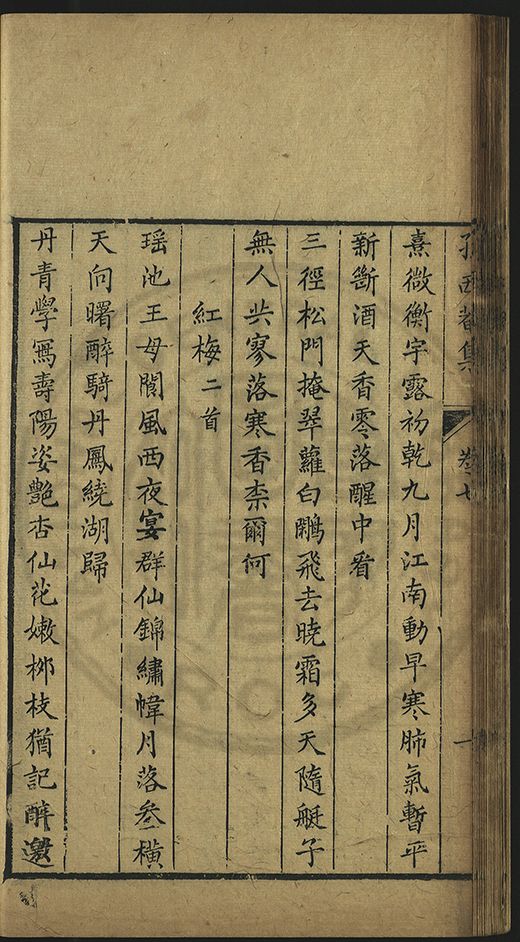 孫西菴集
卷七
一
熹微衡宇露初乾九月江南動早寒肺氣暫平
新斷酒天香零落醒中看
三徑松門掩翠蘿白鷴飛去曉霜多天隨艇子
無人共寥落寒香柰爾何
紅梅二首
瑶池王母閬風西夜宴群仙錦繡幃月落叅橫
天向曙醉騎丹鳳繞湖歸
丹青學寫壽陽姿艷杏仙花嫩栁枝猶記醉邀